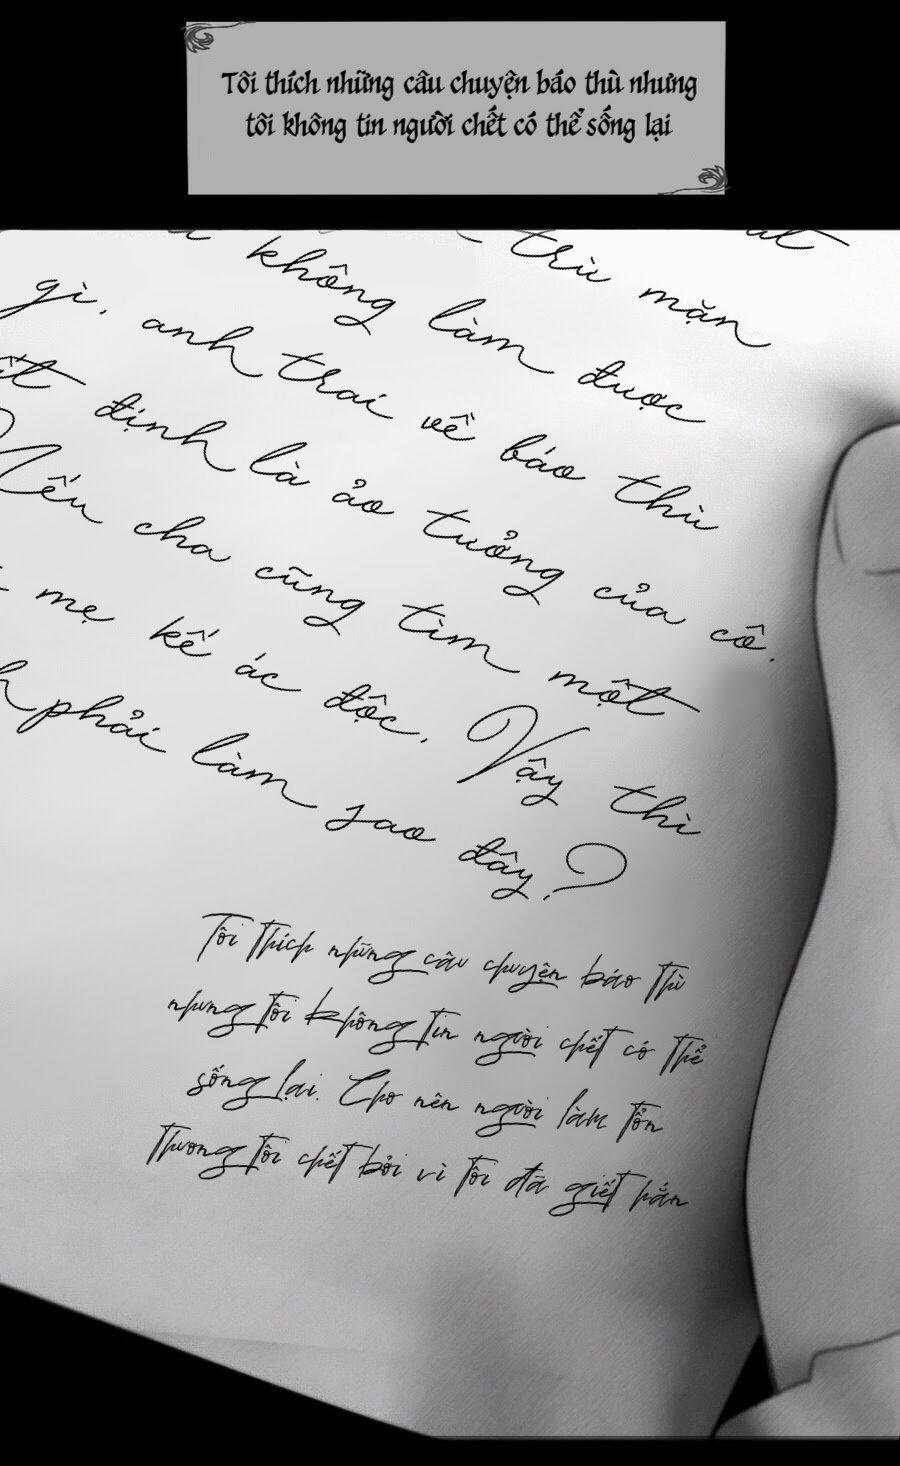 Tôi thích những câu chuyện báo thù nhưng
tôi không tin người chết có thể sống lại
trù mặn
không làm được
gì, anh trai về báo thù
định là ảo tưởng của cô.
Nếu cha cũng tìm một
mẹ kế ác độc, Vậy thì
phải làm sao đây?
Tôi thích những câu chuyện báo thù
nhưng tôi không tin người chết có thể
sống lại. Cho nên người làm tổn
thương tôi chết bởi vì tôi đã giết hắn